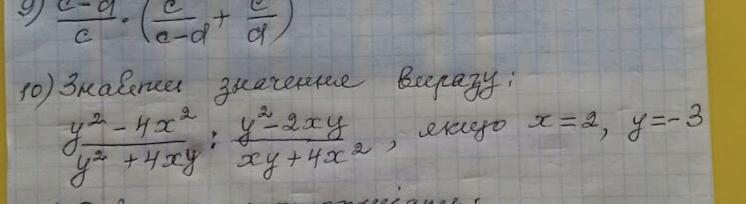 9) (c-d)/c · (c/(c-d) + c/d)
10) Знайти значення виразу:
(y² - 4x²)/(y² + 4xy) : (y² - 2xy)/(xy + 4x²), якщо x = 2, y = -3